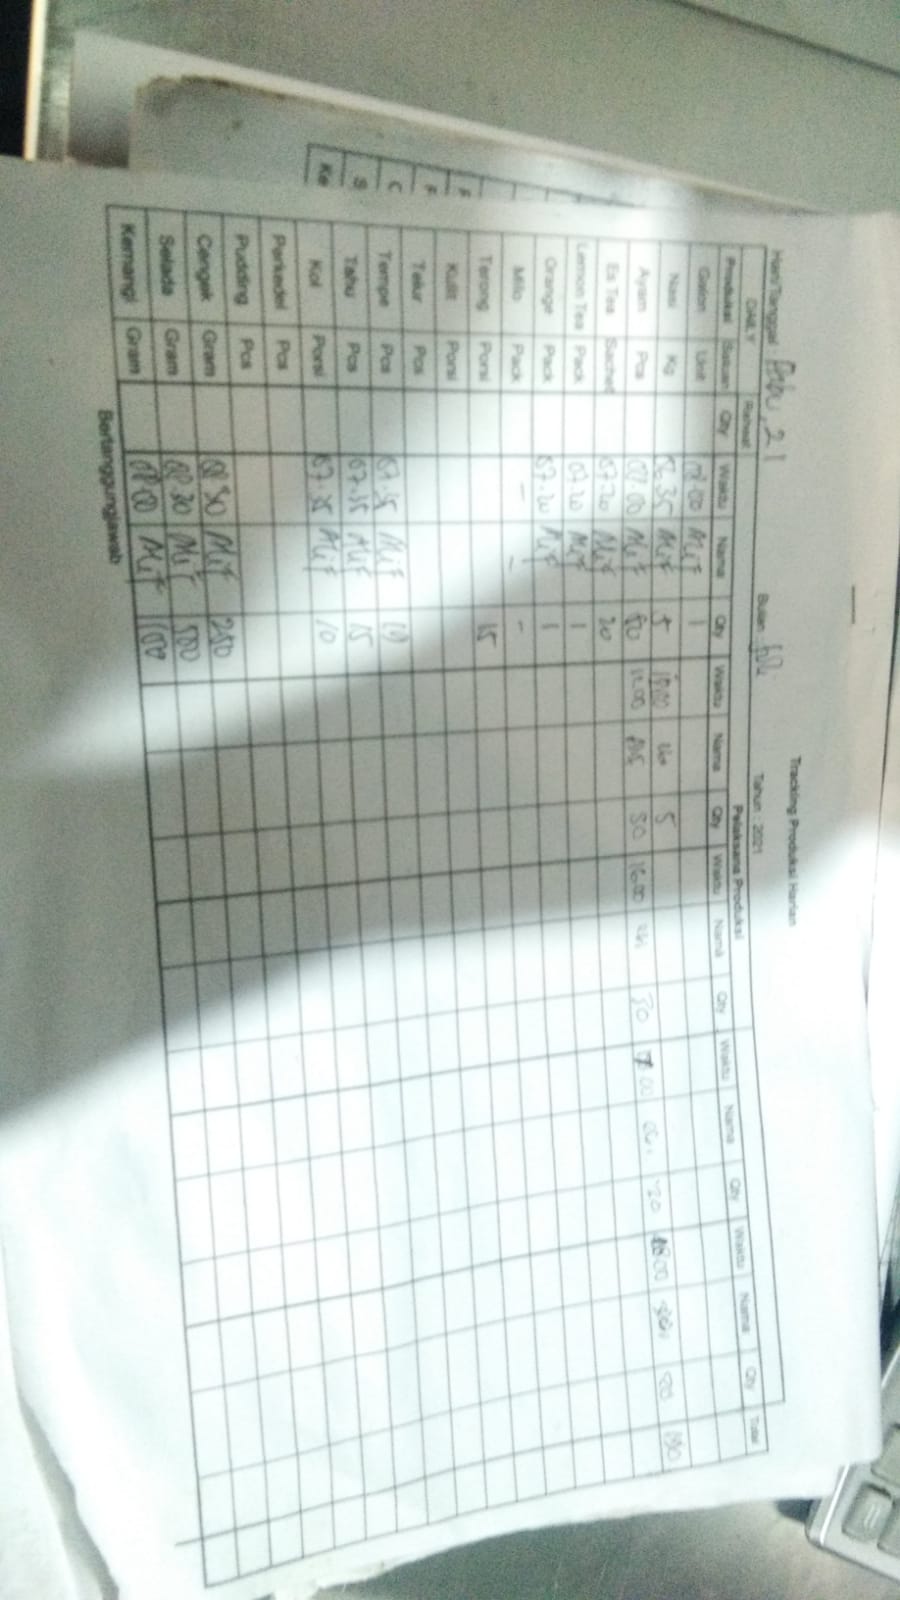 Tracking Produksi Harian
Hari/Tanggal Rabu, 21 Bulan : Juli Tahun : 2021
DAILY Pelaksana Produksi
Produksi Satuan Qty Waktu Nama Qty Waktu Nama Qty Waktu Nama Qty Waktu Nama Qty Waktu Nama Qty Total
Galon Unit 08.00 Mif 1
Nasi Kg 06.35 Mif 5 5
Ayam Pcs Mif 80 12.00 30 16.00 30 20 1800
Es Tea Sachet 07.20 Mif 20
Lemon Tea Pack 07.20 Mif 1
Orange Pack 07.20 Mif 1
Milo Pack - - -
Terong Porsi 15
Kulit Porsi
Telur Pcs
Tempe Pcs 07.35 Mif 10
Tahu Pcs 07.35 Mif 15
Kol Porsi 07.35 Mif 10
Perkedel Pcs
Pudding Pcs
Cengek Gram 08 30 Mif 250
Selada Gram 08 30 Mif 500
Kemangi Gram 08.00 Mif 100
Bertanggungjawab